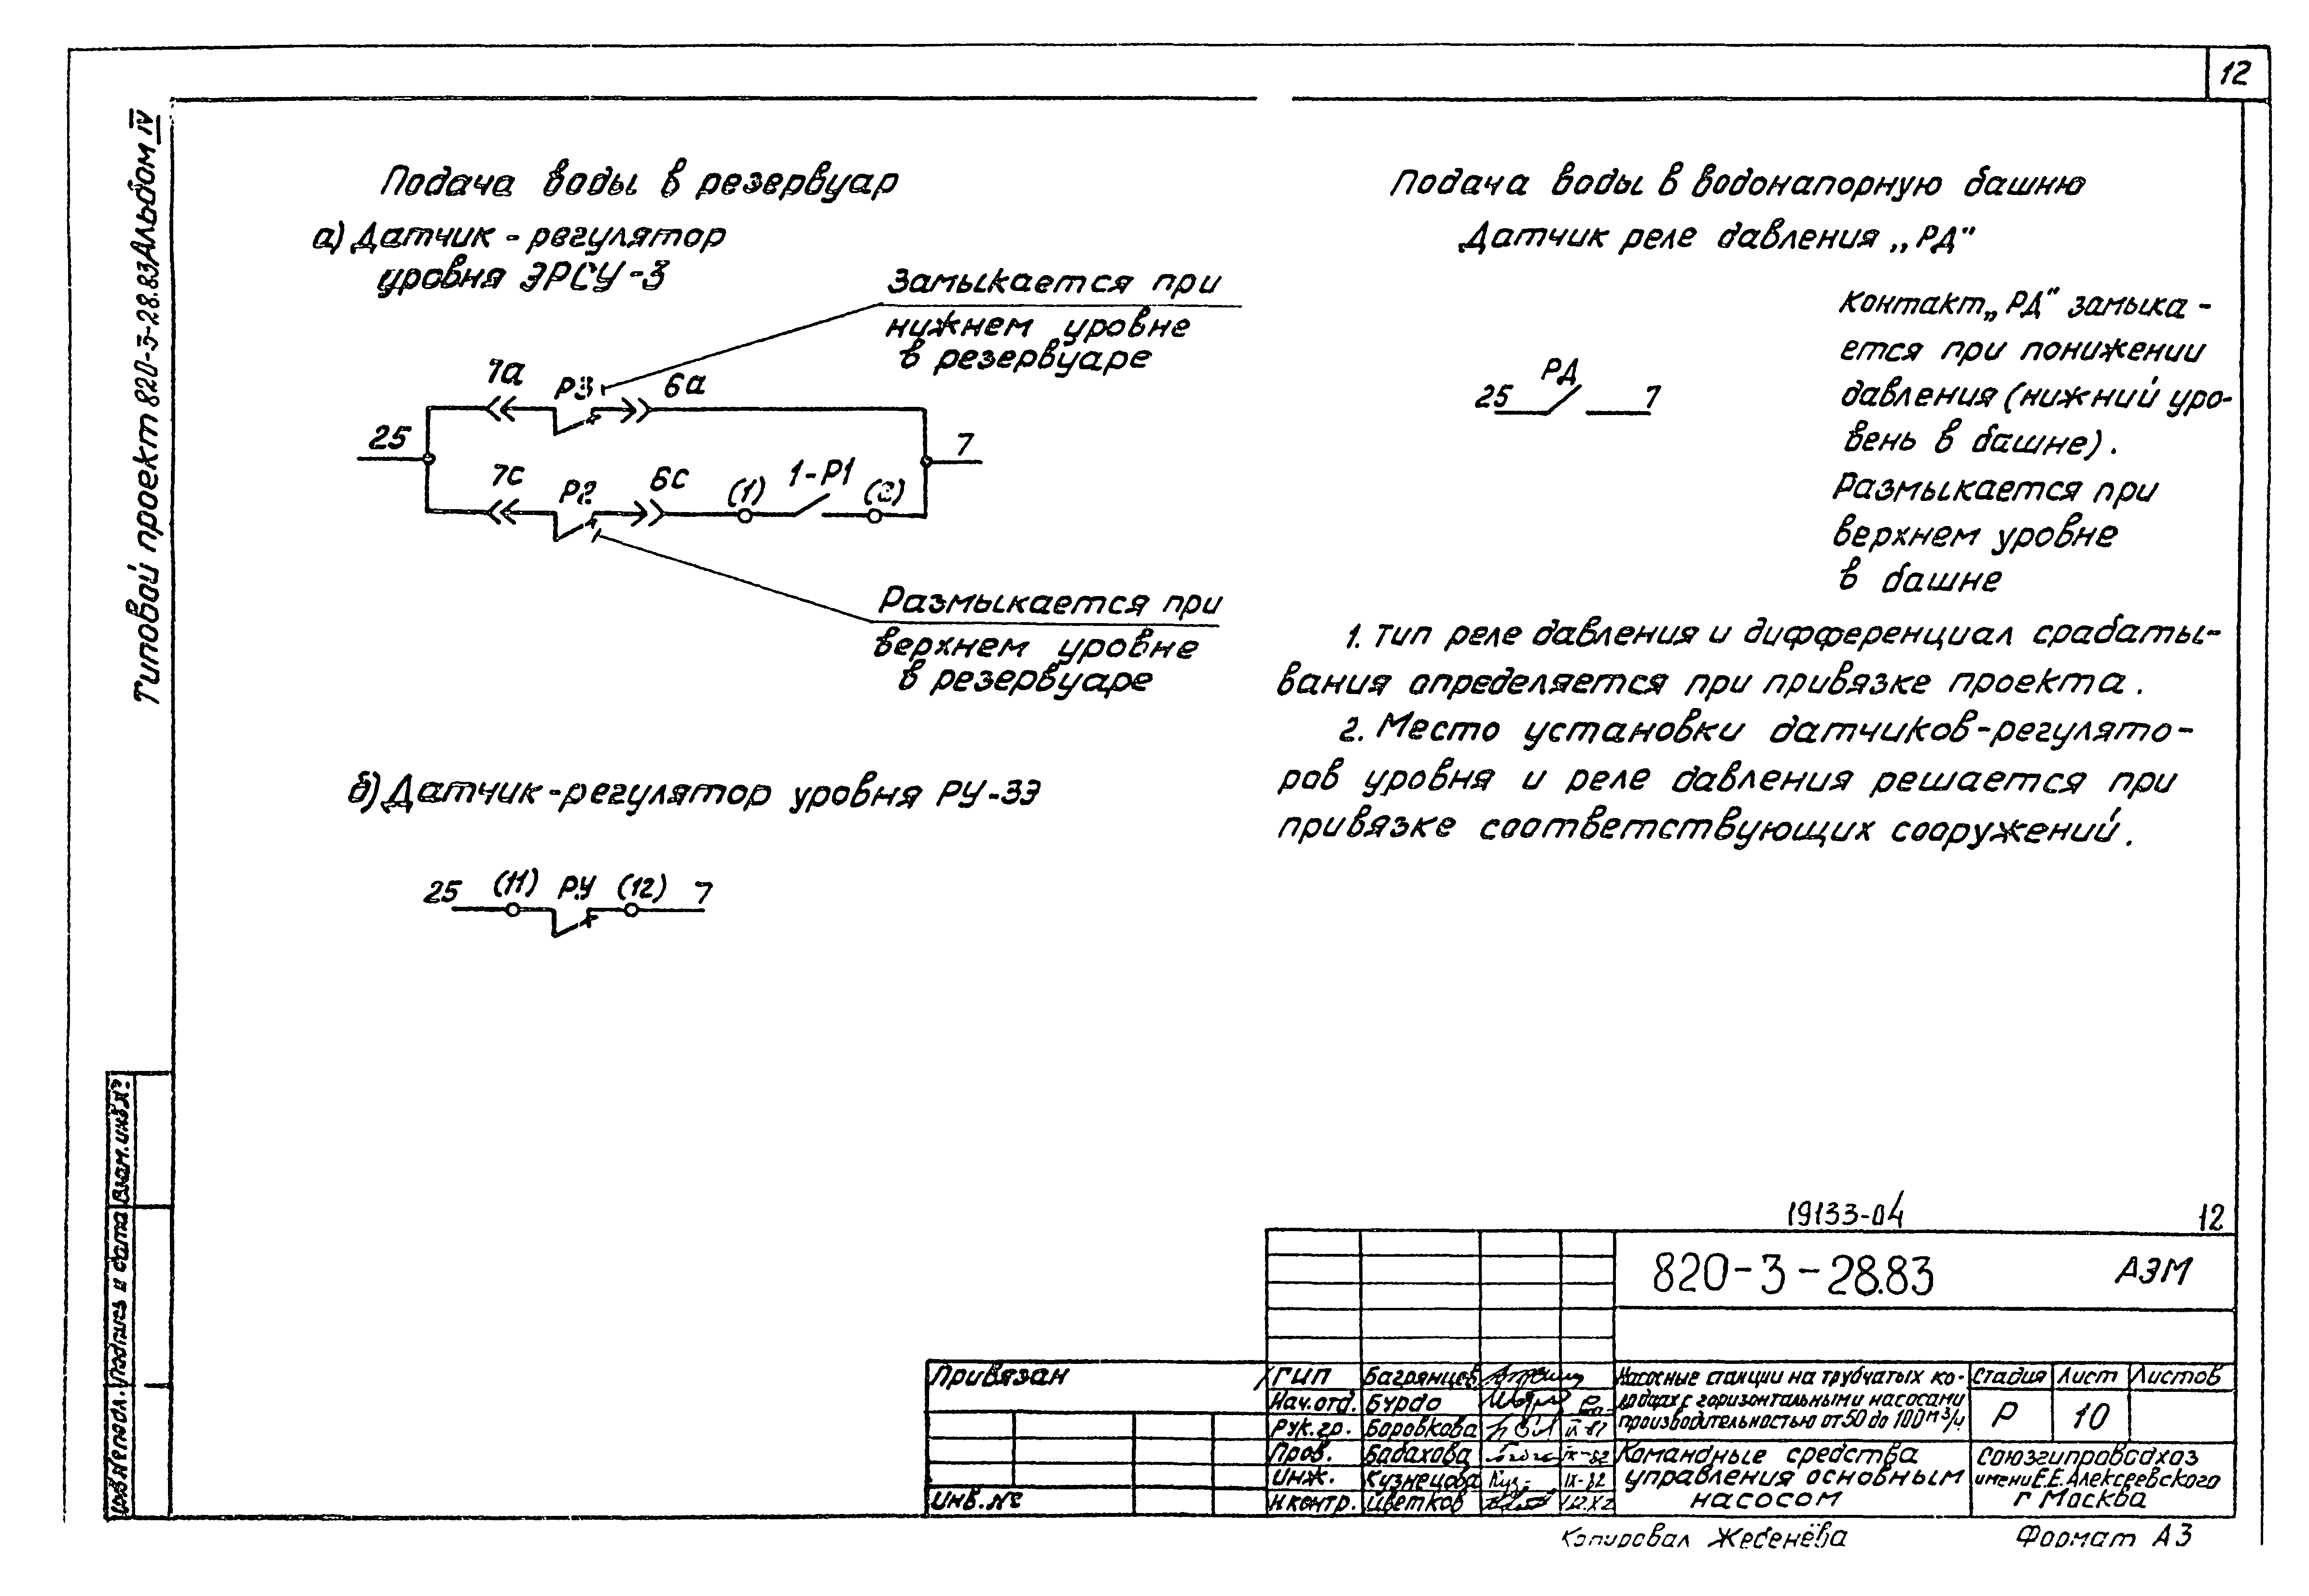 12
Типовой проект 820-3-28.83 Альбом IV
Подача воды в резервуар
а) Датчик - регулятор
уровня ЭРСУ-3
Замыкается при
нижнем уровне
в резервуаре
7а РЗ 6а
25
7
7с Р2 6с (1) 1-Р1 (2)
Размыкается при
верхнем уровне
в резервуаре
б) Датчик-регулятор уровня РУ-3Э
25 (11) РУ (12) 7
Подача воды в водонапорную башню
Датчик реле давления „РД"
РД
25 7
Контакт „РД" замыка-
ется при понижении
давления (нижний уро-
вень в башне).
Размыкается при
верхнем уровне
в башне
1. Тип реле давления и дифференциал срабаты-
вания определяется при привязке проекта.
2. Место установки датчиков-регулято-
ров уровня и реле давления решается при
привязке соответствующих сооружений.
Взам. инв.№
Подпись и дата
Инв.№ подл.
19133-04 12
820-3-28.83 АЭМ
Привязан
Инв.№
ГИП Багрянцев
Нач.отд. Бурдо
Рук.гр. Боровкова
Пров. Бабахова IX-82
Инж. Кузнецова IX-82
Н контр. Цветков
Насосные станции на трубчатых ко-
лодцах с горизонтальными насосами
производительностью от 50 до 100 м³/ч
Стадия Лист Листов
Р 10
Командные средства
управления основным
насосом
Союзгипроводхоз
имени Е.Е. Алексеевского
г Москва
Копировал Жебенёва Формат А3